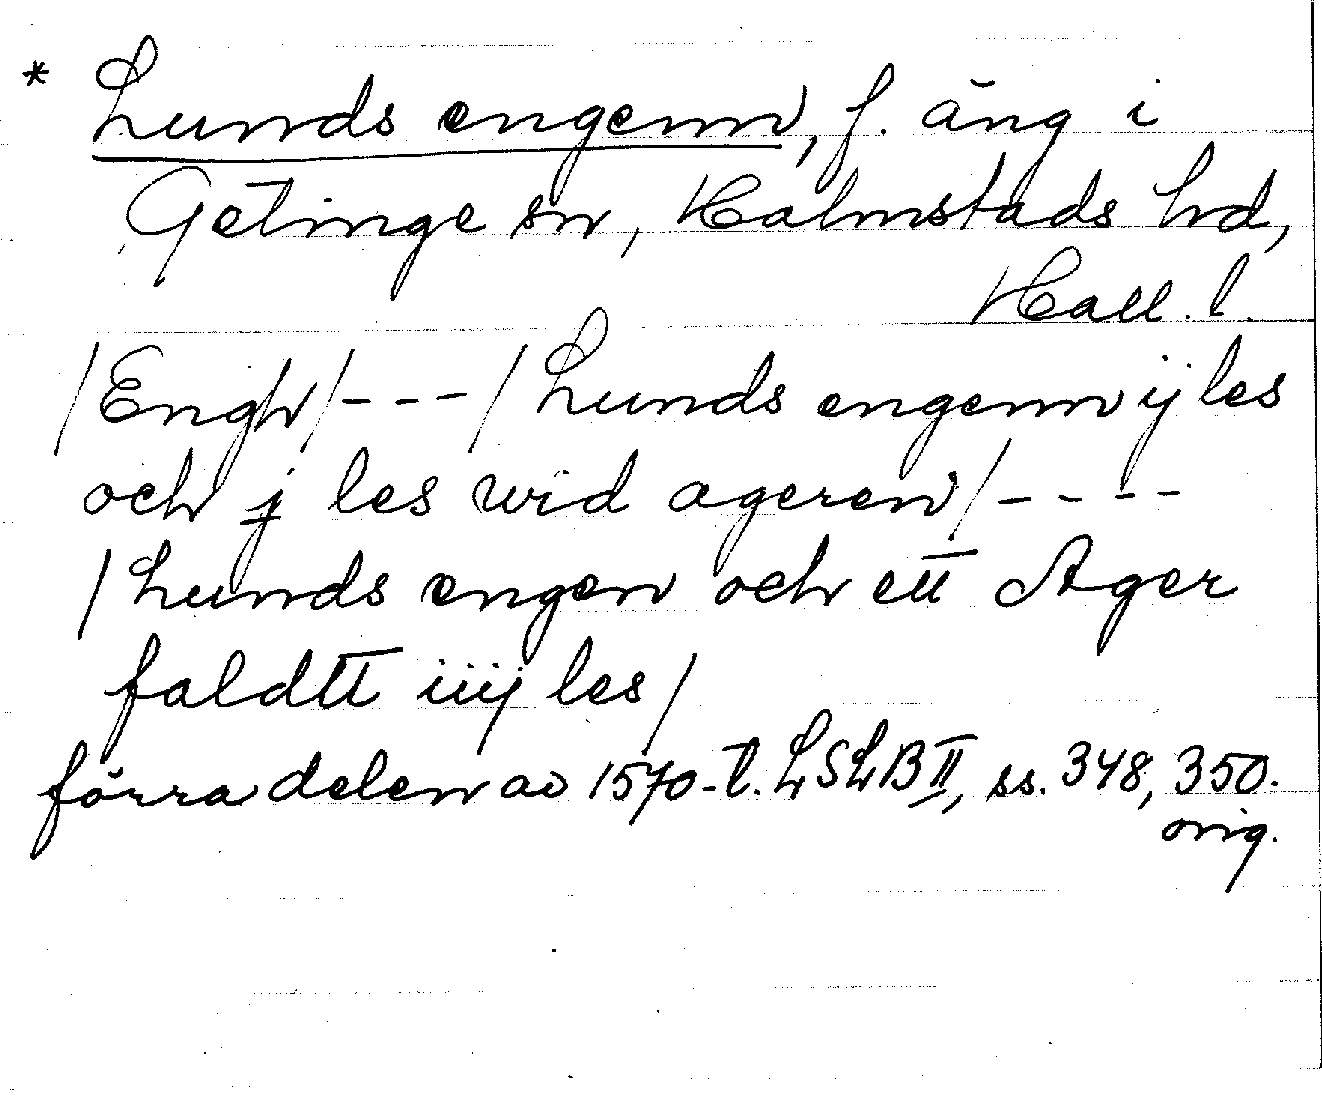 * Lunds engenn, f. äng i
Getinge sn, Halmstads hd,
Hall. l.
/Engh/---/Lunds engenn ij les
och j les wid ageren/----
/Lunds engen och ett Ager
faldtt iiij les/
förra delen av 1570-t. LSLB II, ss. 348, 350.
orig.